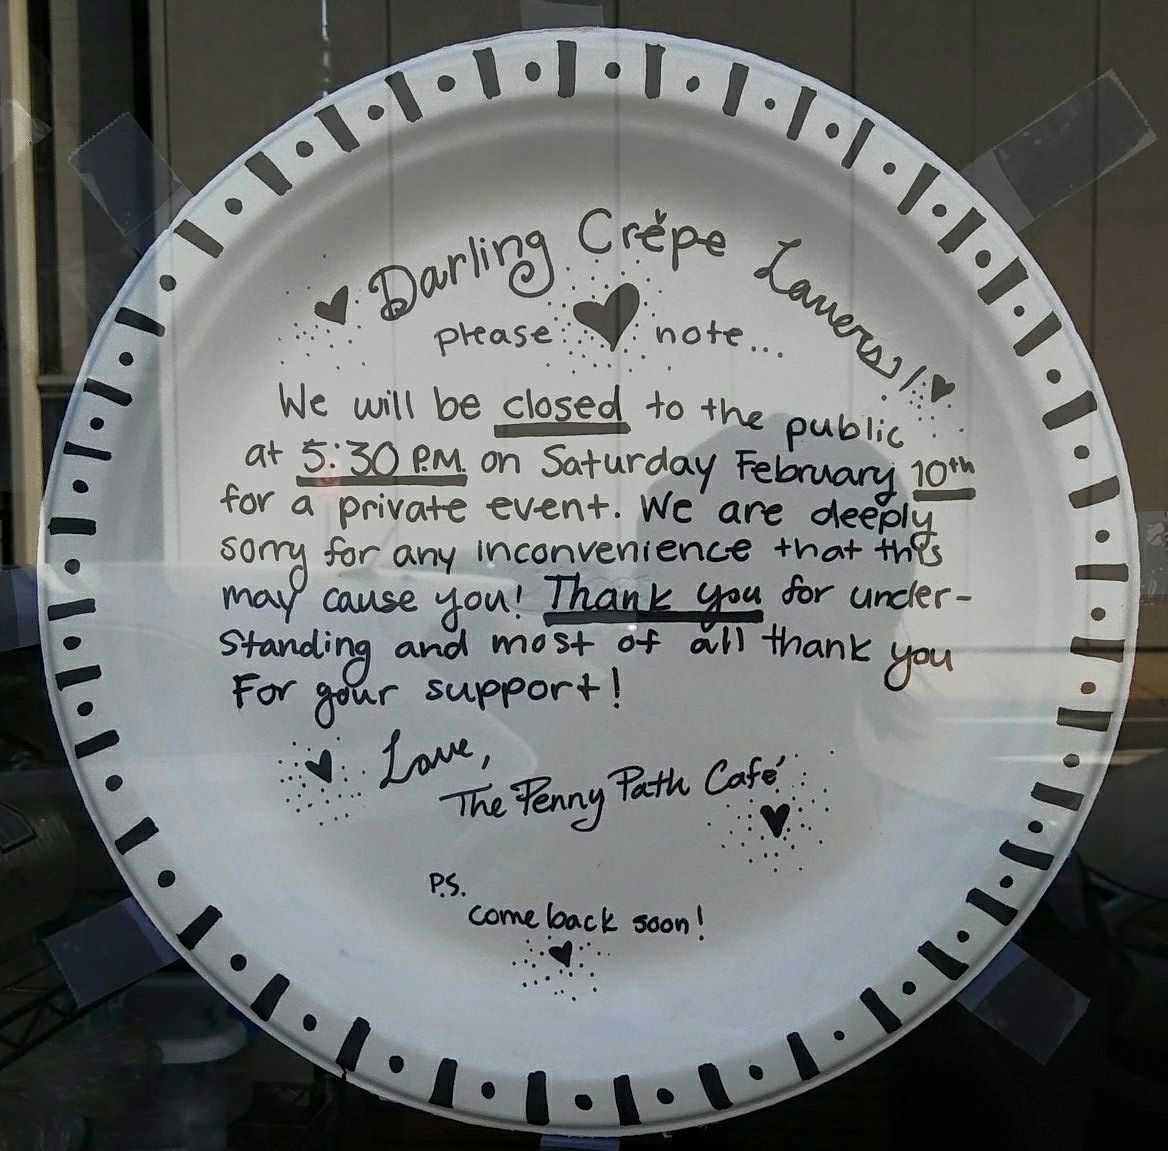 Darling Crěpe Lovers!
please note...
We will be closed to the public
at 5:30 P.M. on Saturday February 10th
for a private event. We are deeply
sorry for any inconvenience that this
may cause you! Thank you for under-
standing and most of all thank you
For your support!
Love,
The Penny Path Café
P.S.
come back soon!